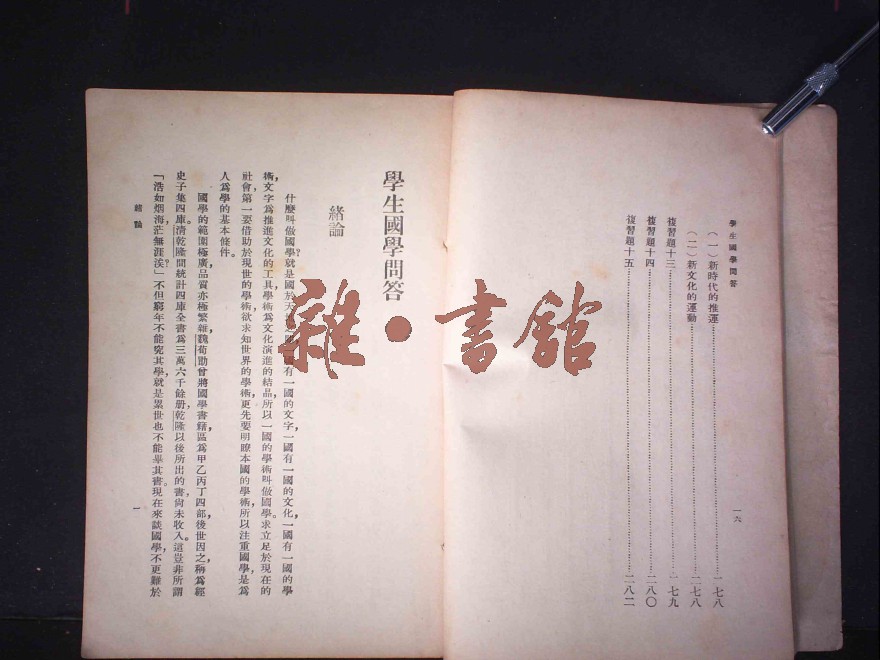 學生國學問答
一六
（一）新時代的推運……………………一七八
（二）新文化的運動……………………二七八
複習題十三……………………一七九
複習題十四……………………二八〇
複習題十五……………………二八二
學生國學問答
緒論
什麼叫做國學?就是國於天 國有一國的文字,一國有一國的文化,一國有一國的學
術,文字爲推進文化的工具,學術爲文化演進的結品,所以一國的學術叫做國學。求立足於現在的
社會,第一要借助於現世的學術,欲求知世界的學術,更先要明瞭本國的學術,所以注重國學,是爲
人爲學的基本條件。
國學的範圍極廣,品質亦極繁雜,魏荀勖曾將國學書籍,區爲甲乙丙丁四部,後世因之,稱爲經
史子集四庫。清乾隆間統計四庫全書爲三萬六千餘册,乾隆以後所出的書,尚未收入。這豈非所謂
「浩如烟海,茫無涯涘」?不但窮年不能究其學,就是累世也不能畢其書。現在來談國學,不更難於
緒論
一
雜·書館